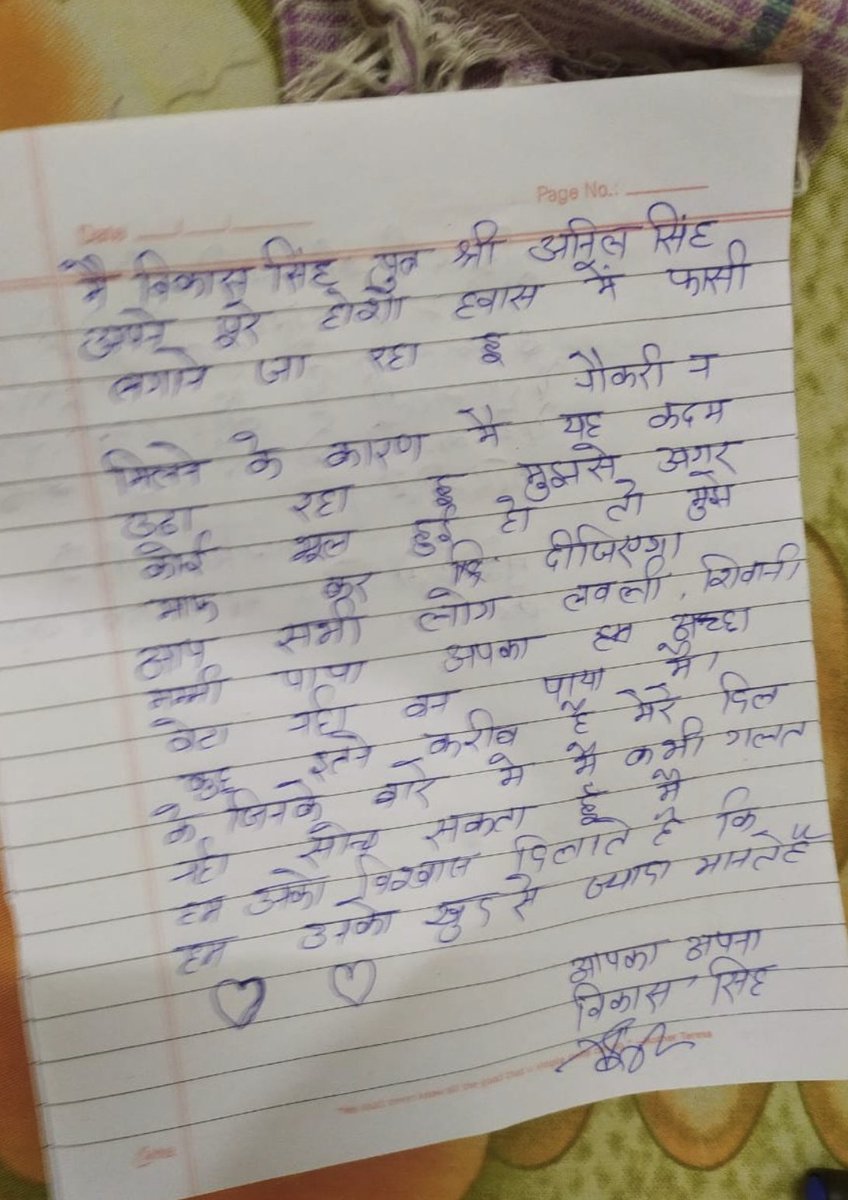 Page No.:
Date
मै विकास सिंह पुत्र श्री अनिल सिंह
अपने पूरे होशो हवास में फासी
लगाने जा रहा हू
नौकरी न
मिलने के कारण मै यह कदम
उठा रहा हू मुझसे अगर
कोई भूल हुई हो तो मुझे
माफ कर दीजिएगा
आप सभी लोग लवली, शिवानी
मम्मी पापा अपका हम अच्छा
बेटा नही बन पाया मै।
कुछ इतने करीब है मेरे दिल
के जिनके बारे मे मै कभी गलत
नही सोच सकता हू मै
हम उनको विश्वास दिलाते है कि
हम उनको खुद से ज्यादा मानते है
आपका अपना
विकास सिंह